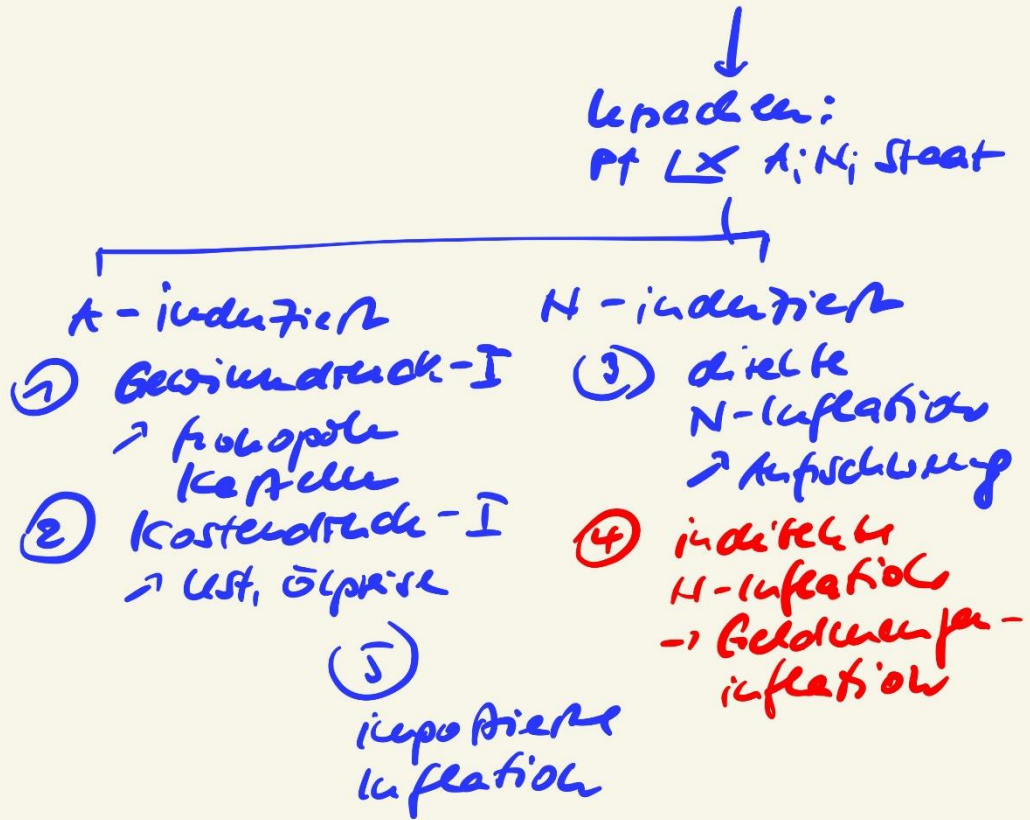 Ursachen:
P↑ A; N; Staat
A-induziert
① Gewinndruck-I
↗ Monopole
Kartelle
② Kostendruck-I
↗ USt, Ölpreise
N-induziert
③ direkte
N-Inflation
↗ Aufschwung
④ indirekte
N-Inflation
→ Geldmengen-
inflation
⑤
importierte
Inflation